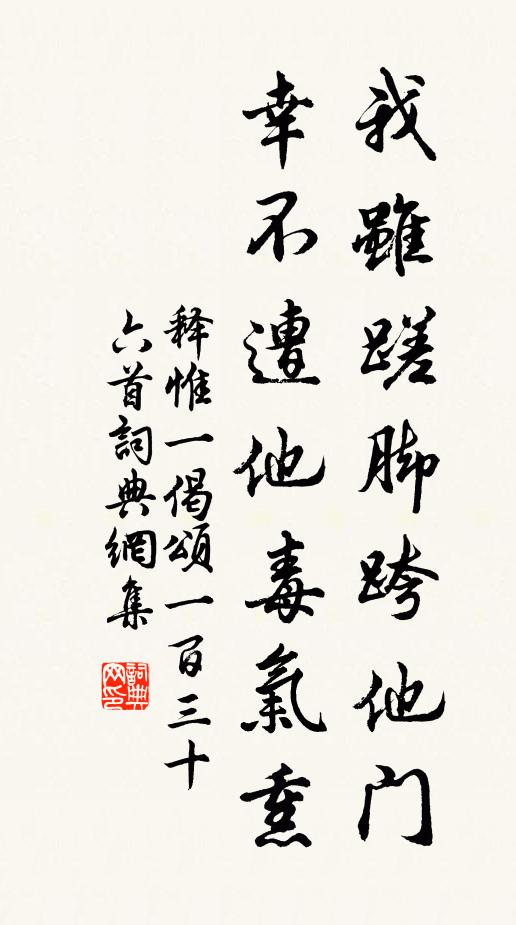 我雖蹉脚跨他门
幸不遭他毒氣熏
释惟一偈頌一百三十
六首詞典網集
詞典网印